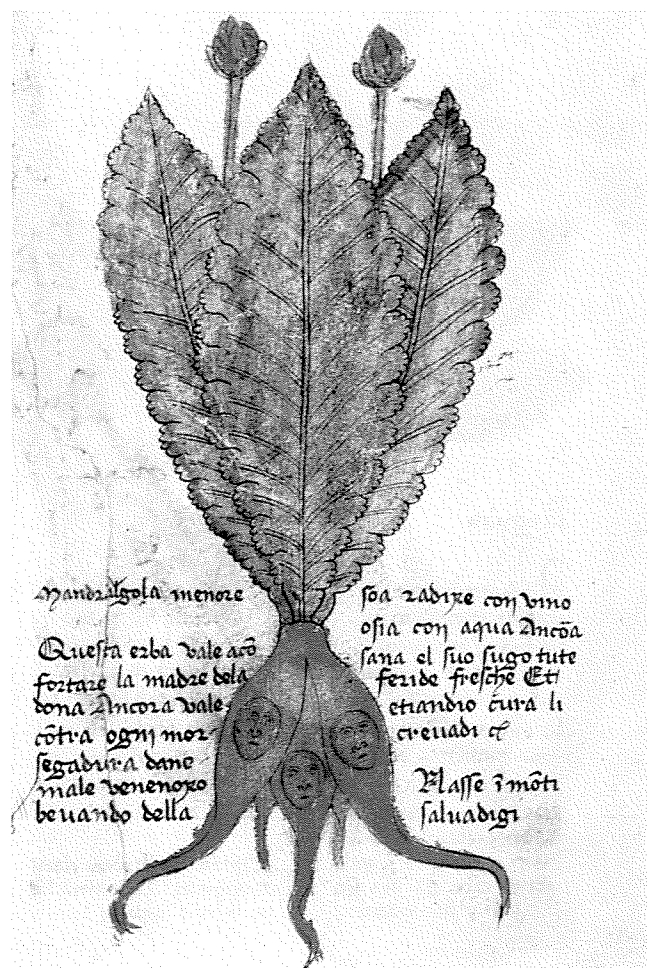 Mandragola menore
Questa erba vale acõ
fortare la madre dela
dona Ancora vale
cõtra ogni mor-
segadura dane
male venenoxo
bevando della
soa radixe con vino
osia con aqua Ancõa
sana el suo sugo tute
feride fresche Et
etiandio cura li
crevadi
Nasse ĩ mõti
salvadigi